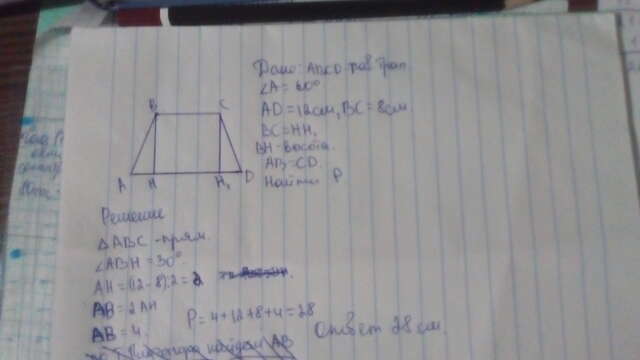 Дано: ABCD-рав трап.
∠A = 60°
AD=12см, BC=8см.
BC=HH₁
BH-высота.
AB=CD.
Найти P
B C
A H H₁ D
Решение
△ABC-прям.
∠ABH=30°.
AH=(12-8):2=2
AB=2AH
AB=4.
P=4+12+8+4=28
Ответ 28см.
находим AB